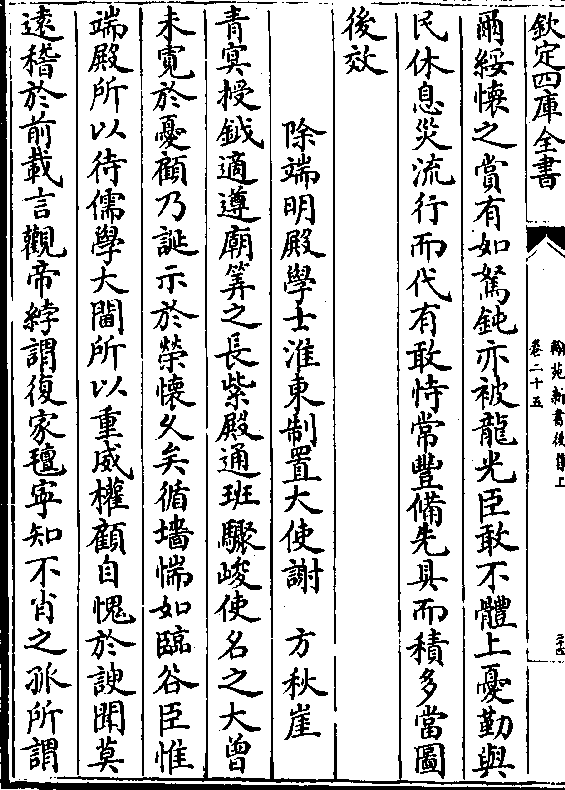 欽定四庫全書
翰苑新書後集上
卷二十五
爾綏懷之賞有如駑鈍亦被龍光臣敢不體上憂勤與
民休息災流行而代有敢恃常豐備先具而積多當圖
後效
除端明殿學士淮東制置大使謝 方秋崖
青冥授鉞適遵廟筭之長紫殿通班驟峻使名之大曾
未寬於憂顧乃誕示於榮懷久矣循墻惴如臨谷臣惟
端殿所以待儒學大閫所以重威權顧自愧於謏聞莫
遠稽於前載言觀帝綍謂復家氊寧知不肖之孤所謂